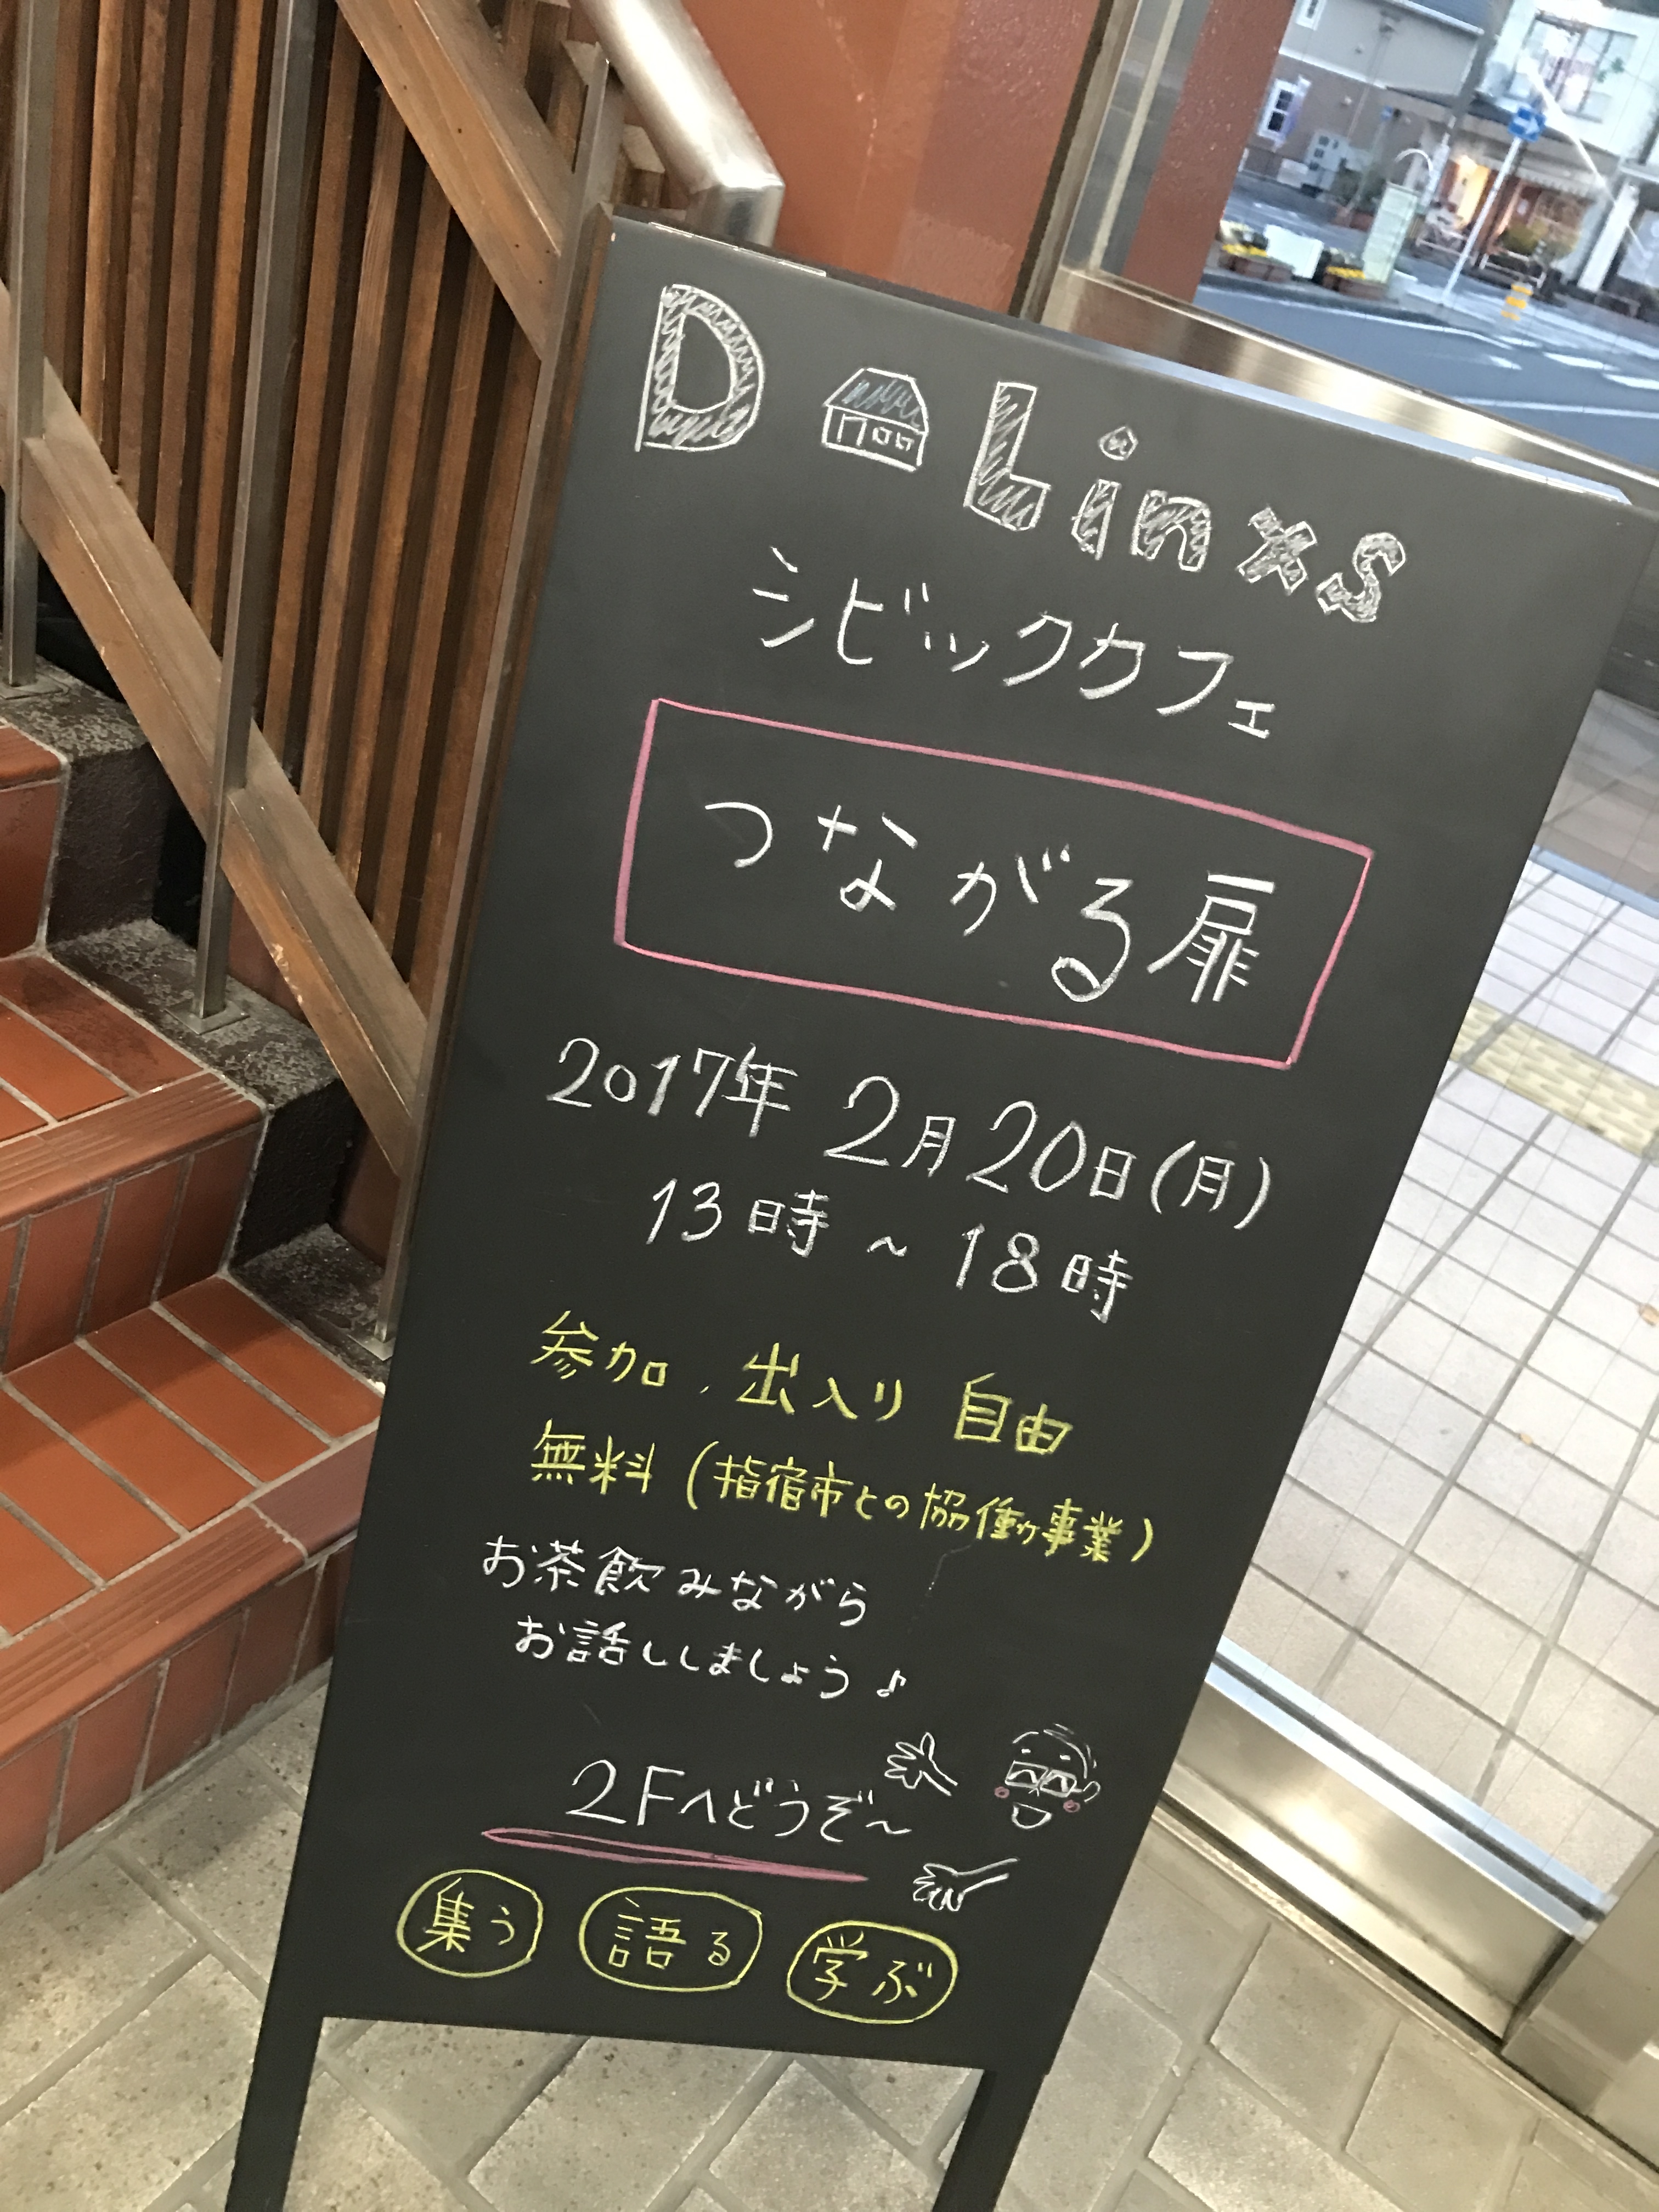 D Linxs
シビックカフェ
つながる扉
2017年 2月20日(月)
13時~18時
参加、出入り 自由
無料(指宿市との協働事業)
お茶飲みながら
お話ししましょう♪
2Fへどうぞ~
集う 語る 学ぶ